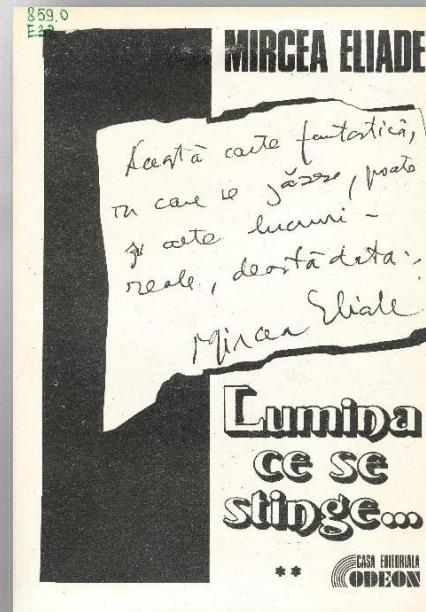 859.0
MIRCEA ELIADE
Această carte fantastică,
în care se găsesc, poate
și alte lucruri –
reale, deastădată.
Mircea Eliade
Lumina
ce se
stinge...
**
CASA EDITORIALA
ODEON